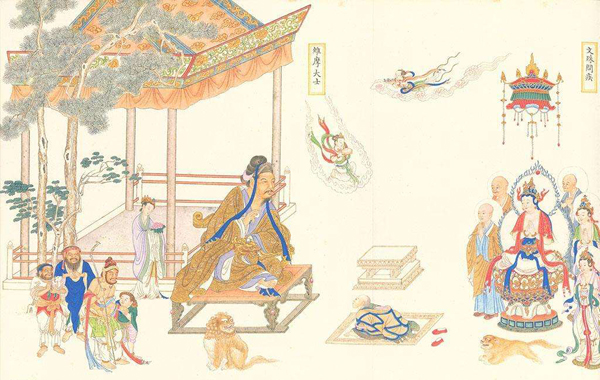 文殊問疾
維摩大士